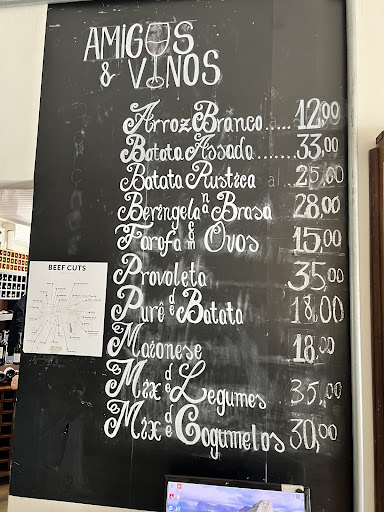 AMIGOS
& VINOS
Arroz Branco..... 12,00
Batata Assada....... 33,00
Batata Rustica ... 25,00
Beringela na Brasa 28,00
Farofa de em Ovos 15,00
Provoleta 35,00
Purê de Batata 18,00
Maionese 18,00
Mix de Legumes 35,00
Mix de Cogumelos 30,00
BEEF CUTS